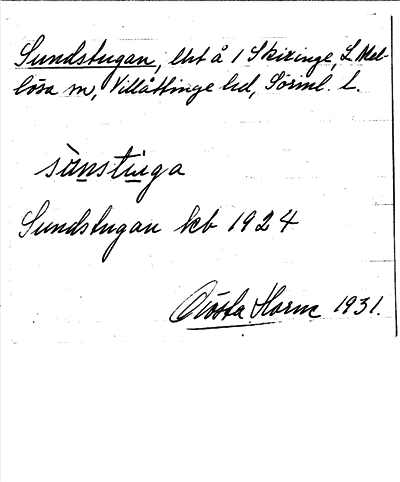 Sundstugan, lht å 1 Skiringe, L. Mel-
lösa sn, Villåttinge hd, Sörml. l.
sùnstùga
Sundstugan kb 1924
Gösta Horne 1931.